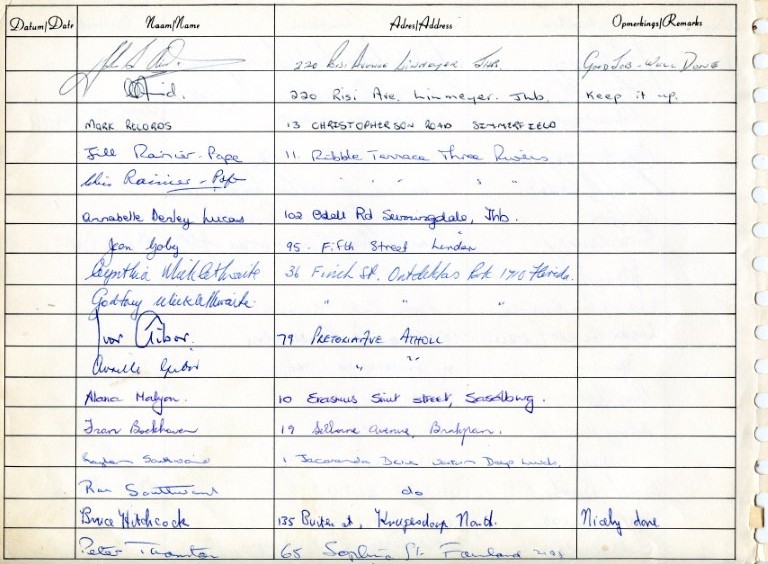 Datum/Date Naam/Name Adres/Address Opmerkings/Remarks
220 Risi Avenue Linmeyer JHB. Good Job - Well Done
220 Risi Ave. Linmeyer. Jhb. Keep it up.
MARK RECORDS 13 CHRISTOPHERSON ROAD SIMMERFIELD
Jill Rainier-Pape 11 Ribble Terrace Three Rivers
Chris Rainier-Pape " " " "
Annabelle Denley Lucas 102 Odell Rd Jhb.
Jean Goby 95. Fifth Street Linden
Cynthia Micklethwaite 36 Finch St. Ontdekkers Park 1710 Florida.
Godfrey Micklethwaite " " "
Ivor Gibor. 79 PRETORIA AVE ATHOLL
Gibor " "
Alana 10 Erasmus street, Sasolburg.
Fran 19 Selborne Avenue, Brakpan.
1 Jacaranda Drive
Ron Southwood do
Bruce Hitchcock 135 st, Krugersdorp North. Nicely done
Peter Thornton 65 Sophia St. Fairland